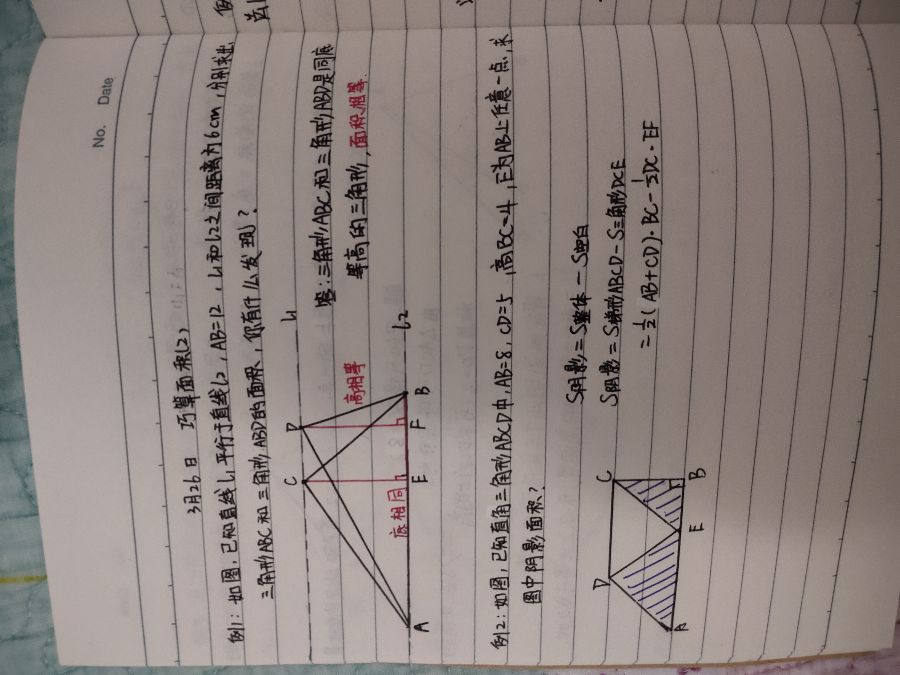 No.
Date
3月26日 巧算面积(2)
例1：如图，已知直线l1平行于直线l2，AB=12，l1和l2之间距离为6cm，分别求出
三角形ABC和三角形ABD的面积，你有什么发现？
C D l1
高相等
底相同
A E F B l2
答：三角形ABC和三角形ABD是同底
等高的三角形，面积相等.
例2：如图，已知直角三角形ABCD中，AB=8，CD=5，高BC=4，E为AB上任意一点，求
图中阴影面积？
D C
A E B
S阴影=S整体-S空白
S阴影=S梯形ABCD-S三角形DCE
=½(AB+CD)·BC-½DC·EF